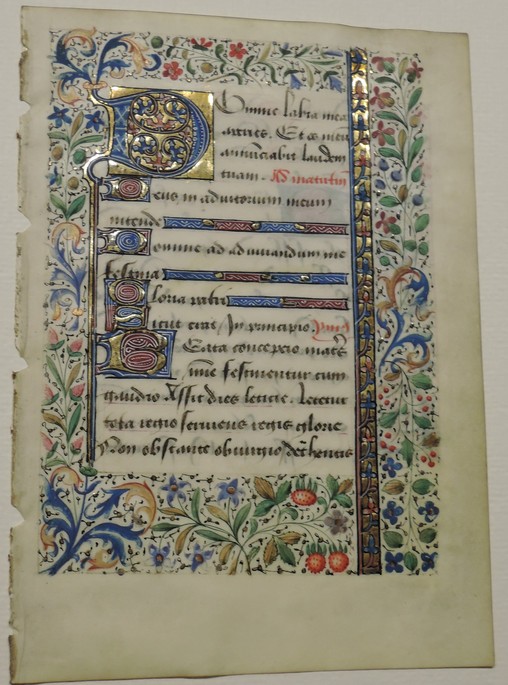 Domine labia mea
aperies. Et os meū
annunciabit laudem
tuam. Ad matutin
Deus in adiutorium meum
intende
Domine ad adiuuandum me
festina
Gloria patri
Sicut erat, In principio.
Beata concepcio matē
gaudio Assit dies leticie.
tota regio seruiens regis glorie
Non obstante